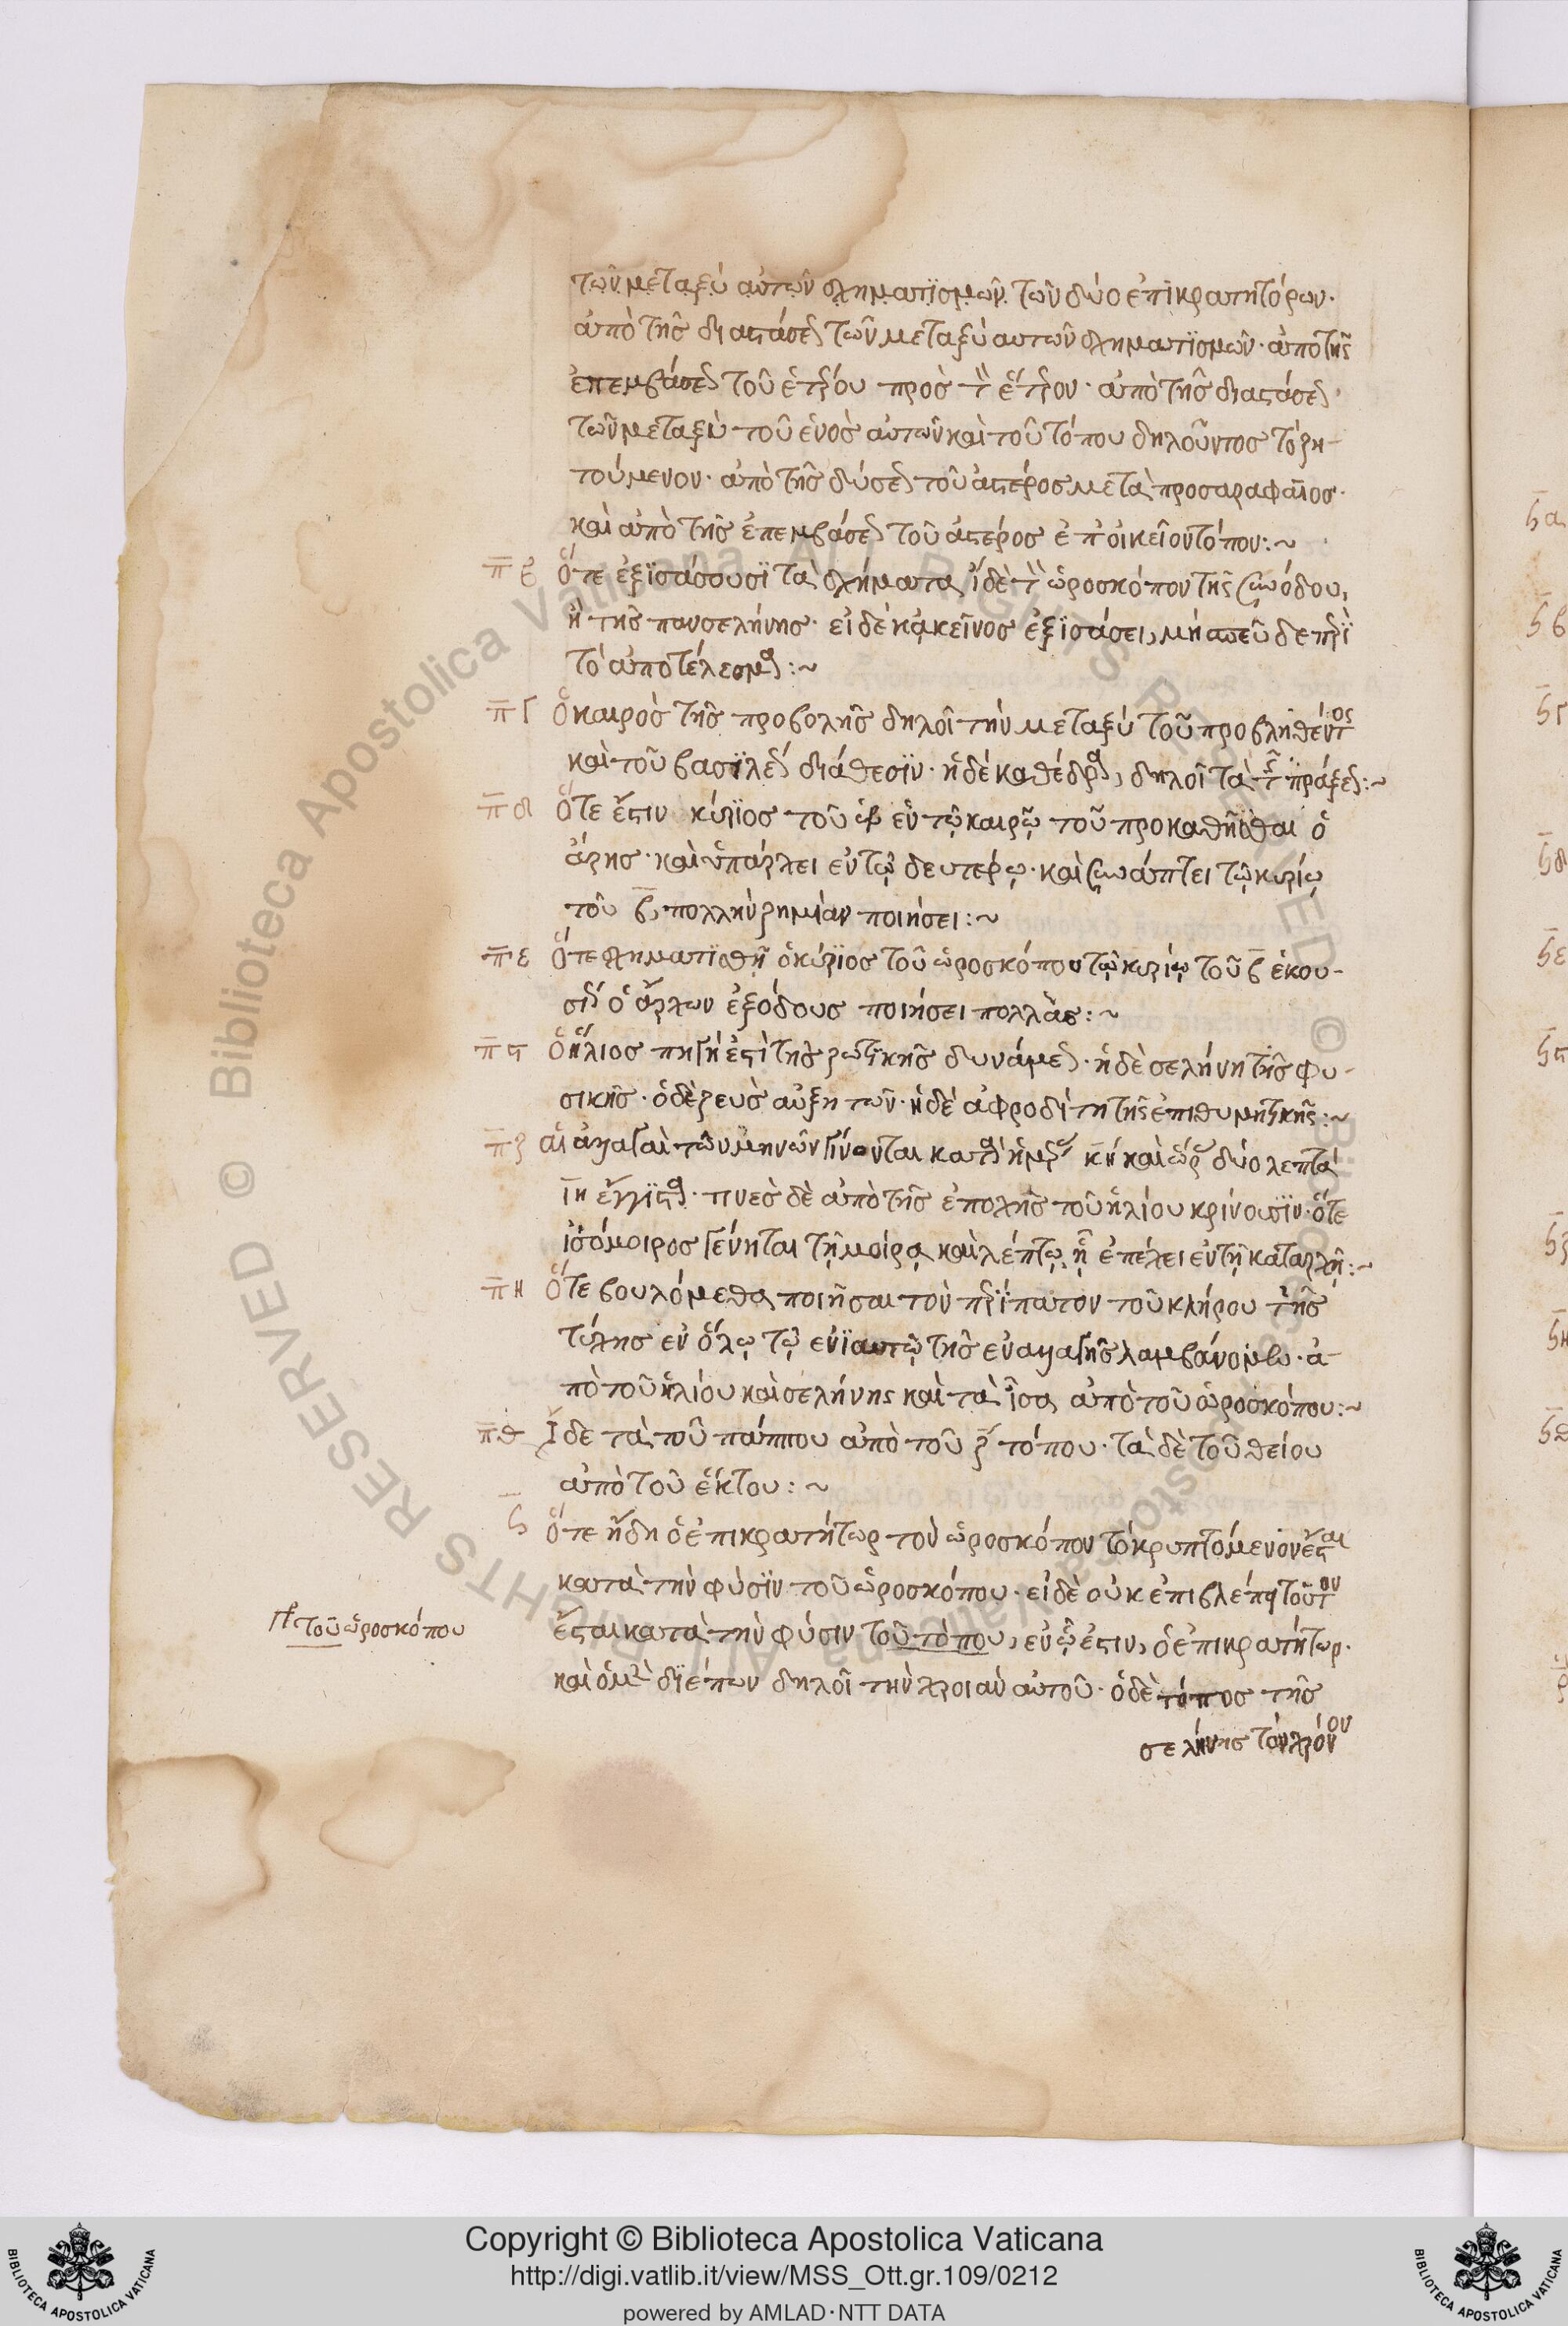 τῶν μεταξὺ αὐτῶν σχηματισμῶν τῶν δύο ἐπικρατητόρων·
ἀπὸ τῆς διαστάσεως τῶν μεταξὺ αὐτῶν σχηματισμῶν· ἀπὸ τῆς
ἐπεμβάσεως τοῦ ἑτέρου πρὸς τὸν ἕτερον· ἀπὸ τῆς διαστάσεως
τῶν μεταξὺ τοῦ ἑνὸς αὐτῶν καὶ τοῦ τόπου δηλοῦντος τὸ ζη-
τούμενον· ἀπὸ τῆς δύσεως τοῦ ἀστέρος μετὰ προσαραφαῖος·
καὶ ἀπὸ τῆς ἐπεμβάσεως τοῦ ἀστέρος ἐπ' οἰκεῖον τόπου:~
π̅β̅ ὅτε ἐξισάσουσι τὰ σχήματα, ἴδε τὸν ὡροσκόπον τῆς συνόδου,
ἢ τῆς πανσελήνης· εἰ δὲ κἀκεῖνος ἐξισάσει, μὴ σπεῦδε περὶ
τὸ ἀποτέλεσμα:~
π̅γ̅ ὁ καιρὸς τῆς προβολῆς δηλοῖ τὴν μεταξὺ τοῦ προβληθέντος
καὶ τοῦ βασιλέως διάθεσιν· ἡ δὲ καθέδρα, δηλοῖ τὰ τῆς πράξεως:~
π̅δ̅ ὅτε ἔστιν κύριος τοῦ ὡ ἐν τῷ καιρῷ τοῦ προκαθῆσθαι ὁ
ἄρης· καὶ ὑπάρχει ἐν τῷ δευτέρῳ· καὶ συνάπτει τῷ κυρίῳ
τοῦ β̅, πολλὴν ζημίαν ποιήσει:~
π̅ε̅ ὅτε σχηματισθῇ ὁ κύριος τοῦ ὡροσκόπου τῷ κυρίῳ τοῦ β̅ ἑκου-
σίως ὁ ἄρχων ἐξόδους ποιήσει πολλάς:~
π̅ϛ̅ ὁ ἥλιος πηγή ἐστὶ τῆς ζωτικῆς δυνάμεως· ἡ δὲ σελήνη τῆς φυ-
σικῆς· ὁ δὲ ζεὺς αὐξητῶν· ἡ δὲ ἀφροδίτη τῆς ἐπιθυμητικῆς:~
π̅ζ̅ αἱ ἀναγαὶ τῶν μηνῶν γίνονται κατὰ ἡμέρας κ̅η̅ καὶ ὥρας δύο λεπτὰ
ι̅η̅ ἔγγιστα· τινὲς δὲ ἀπὸ τῆς ἐποχῆς τοῦ ἡλίου κρίνουσιν· ὅτε
ἰσόμοιρος γένηται τῇ μοίρᾳ καὶ λέπτῳ, ᾗ ἐπέχει ἐν τῇ καταρχῇ:~
π̅η̅ ὅτε βουλόμεθα ποιῆσαι τὸν περίπατον τοῦ κλήρου τῆς
τύχης ἐν ὅλῳ τῷ ἐνιαυτῷ τῆς ἐναγαγῆς λαμβάνομεν· ἀ-
πὸ τοῦ ἡλίου καὶ σελήνης καὶ τὰ ἴσα ἀπὸ τοῦ ὡροσκόπου:~
π̅θ̅ ἴδε τὰ τοῦ πάππου ἀπὸ τοῦ ζ̅ τόπου· τὰ δὲ τοῦ θείου
ἀπὸ τοῦ ἕκτου:~
ϟ̅ ὅτε ἤδη ὁ ἐπικρατήτωρ τὸν ὡροσκόπον τὸ κρυπτόμενον ἔσται
κατὰ τὴν φύσιν τοῦ ὡροσκόπου· εἰ δὲ οὐκ ἐπιβλέπῃ τοῦτον
γρ τοῦ ὡροσκόπου
ἔσται κατὰ τὴν φύσιν τοῦ τόπου, ἐν ᾧ ἐστιν, ὁ ἐπικρατήτωρ·
καὶ ὁ μὲν διέπων δηλοῖ τὴν χροιὰν αὐτοῦ· ὁ δὲ τόπος τῆς
σελήνης τὸν χρόνον
ϟα
ϟβ
ϟγ
ϟδ
ϟε
ϟϛ
ϟζ
ϟη
ϟθ
ρ
Copyright © Biblioteca Apostolica Vaticana
http://digi.vatlib.it/view/MSS_Ott.gr.109/0212
powered by AMLAD·NTT DATA